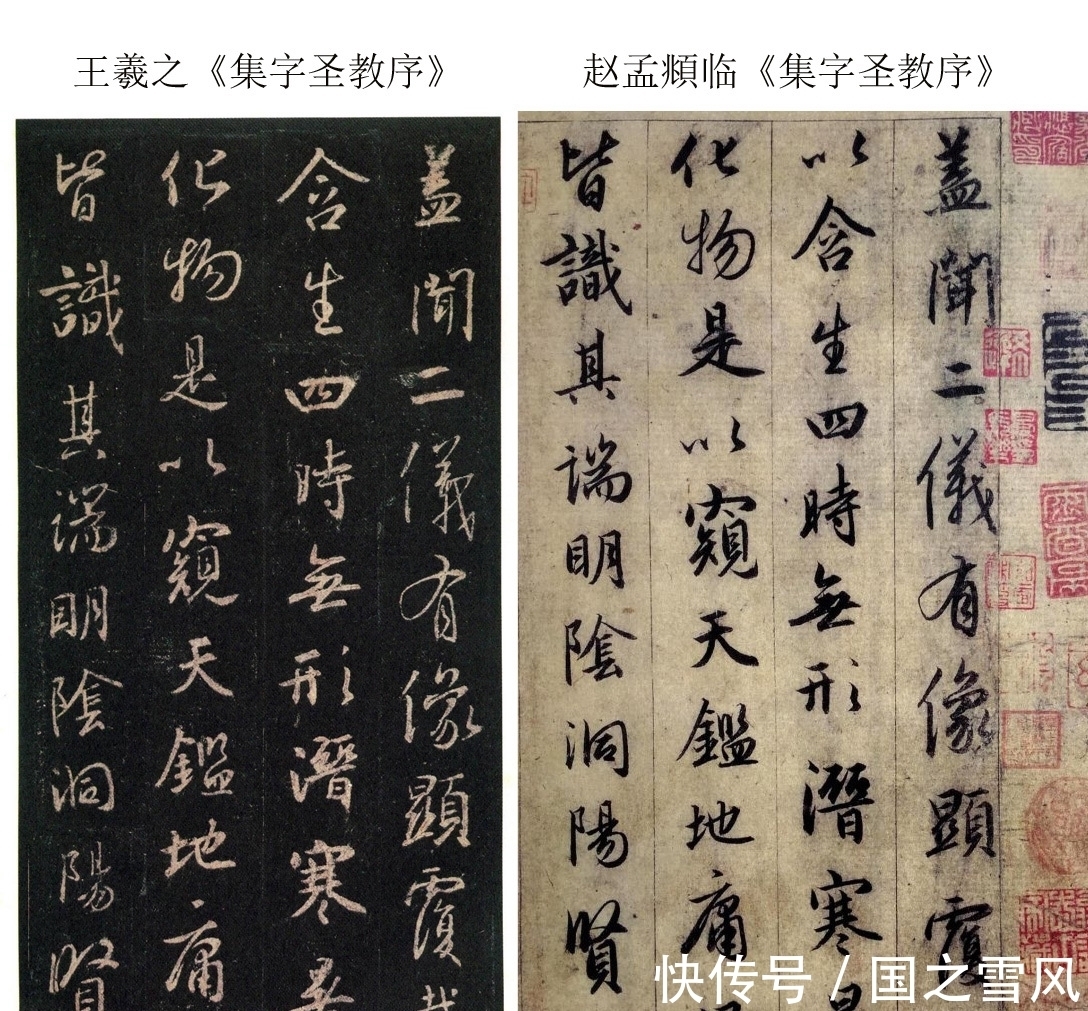 王羲之《集字圣教序》
赵孟頫临《集字圣教序》
蓋聞二儀有像顯覆載
含生四時無形潛寒暑
化物是以窺天鑑地庸
皆識其端明陰洞陽賢
蓋聞二儀有像顯覆
以含生四時無形潛寒暑
化物是以窺天鑑地庸
皆識其端明陰洞陽賢
快传号 / 国之雪风